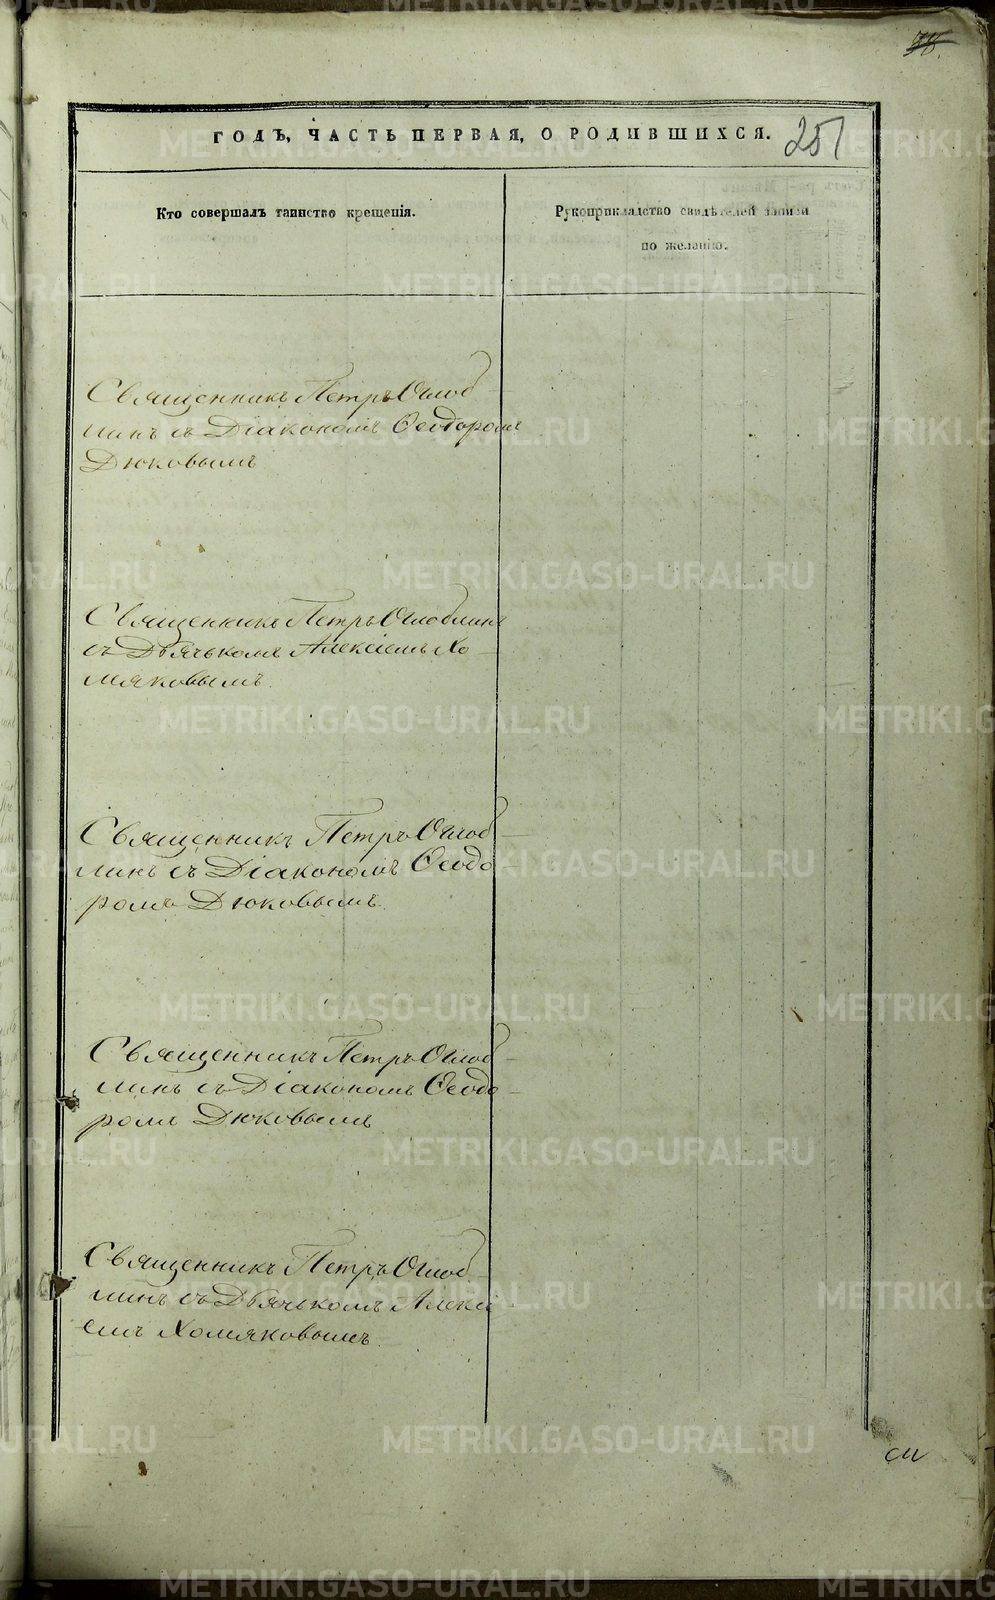 ГОДЪ, ЧАСТЬ ПЕРВАЯ, О РОДИВШИХСЯ.
251
Кто совершалъ таинство крещенія.
Рукоприкладство свидѣтелей записи
по желанію.
Священникъ Петръ Оглоб
линъ съ Діакономъ Ѳеодоромъ
Дюковымъ
Священникъ Петръ Оглоблинъ
съ Дьячькомъ Алексіемъ Хо-
мяковымъ.
Священникъ Петръ Оглоб-
линъ съ Діакономъ Ѳеодо
ромъ Дюковымъ.
Священникъ Петръ Оглоб-
линъ съ Діакономъ Ѳеодо-
ромъ Дюковымъ
Священникъ Петръ Оглоб-
линъ съ Дьячькомъ Алексі-
емъ Хомяковымъ.
METRIKI.GASO-URAL.RU